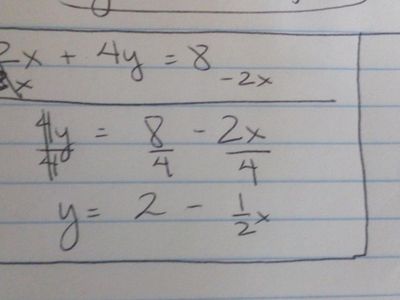 2x + 4y = 8
-2x
4y/4 = 8/4 - 2x/4
y = 2 - 1/2 x